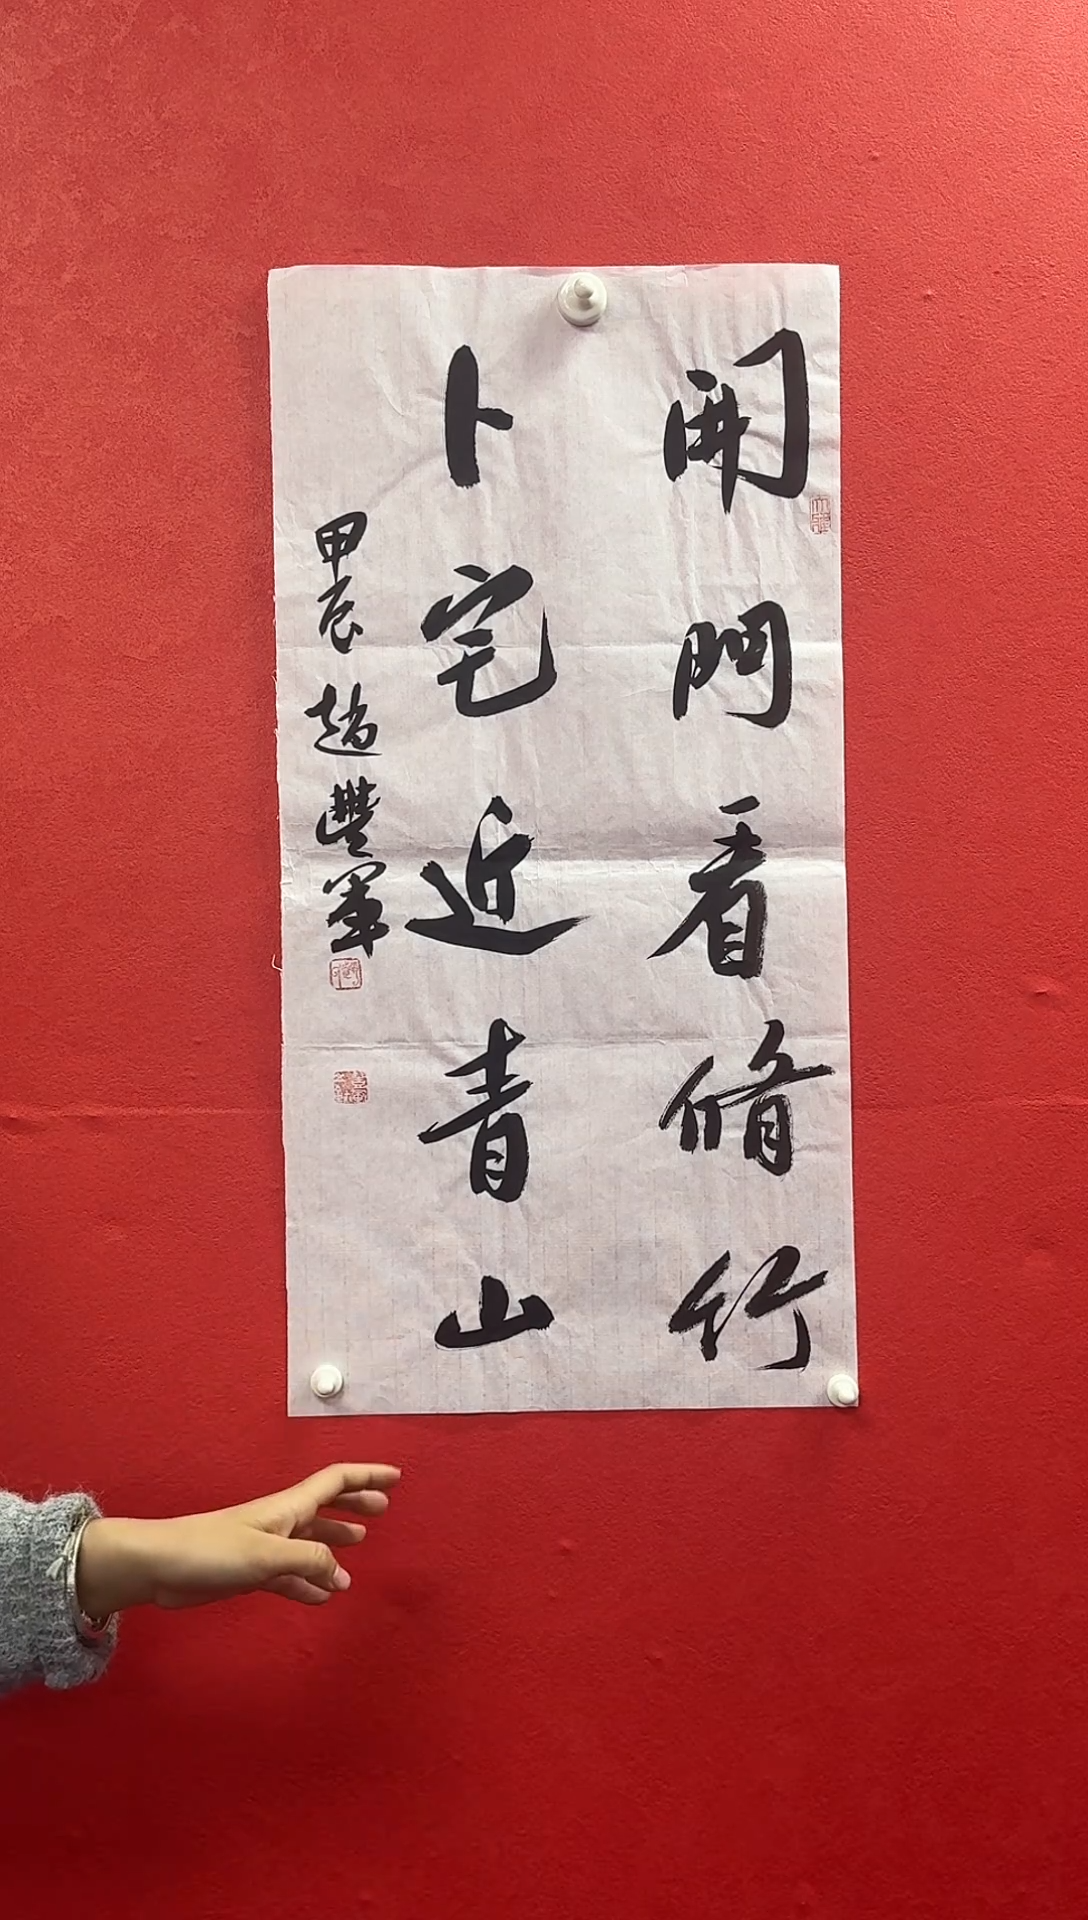 開門看脩竹
卜宅近青山
甲辰 趙豐軍